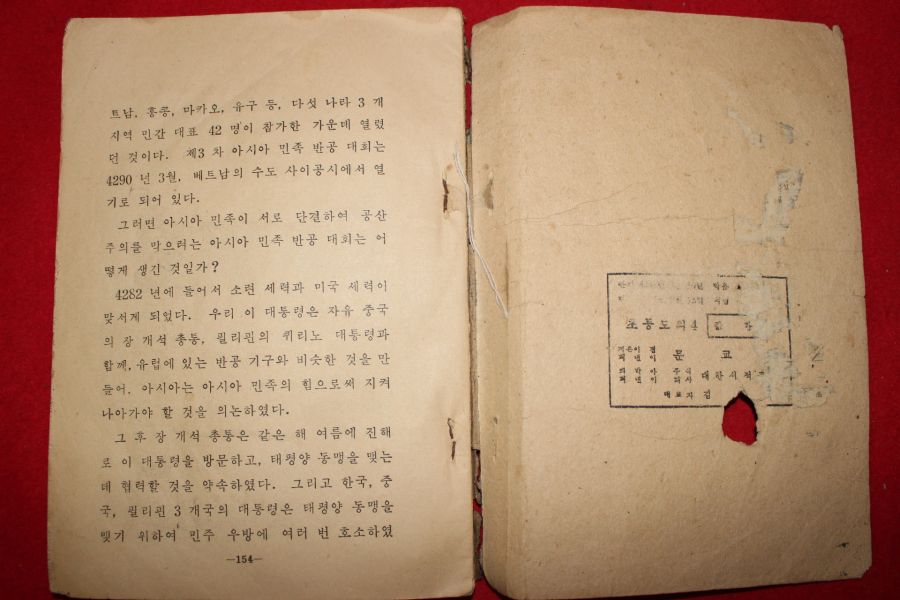 트남, 홍콩, 마카오, 유구 등, 다섯 나라 3 개
지역 민간 대표 42 명이 참가한 가운데 열렸
던 것이다. 제3 차 아시아 민족 반공 대회는
4290 년 3월, 베트남의 수도 사이공시에서 열
기로 되어 있다.
그러면 아시아 민족이 서로 단결하여 공산
주의를 막으려는 아시아 민족 반공 대회는 어
떻게 생긴 것일가?
4282 년에 들어서 소련 세력과 미국 세력이
맞서게 되었다. 우리 이 대통령은 자유 중국
의 장 개석 총통, 필리핀의 퀴리노 대통령과
함께, 유럽에 있는 반공 기구와 비슷한 것을 만
들어, 아시아는 아시아 민족의 힘으로써 지켜
나아가야 할 것을 의논하였다.
그 후 장 개석 총통은 같은 해 여름에 진해
로 이 대통령을 방문하고, 태평양 동맹을 맺는
데 협력할 것을 약속하였다. 그리고 한국, 중
국, 필리핀 3 개국의 대통령은 태평양 동맹을
맺기 위하여 민주 우방에 여러 번 호소하였
—154—
초등도의4
문 교
대한서적